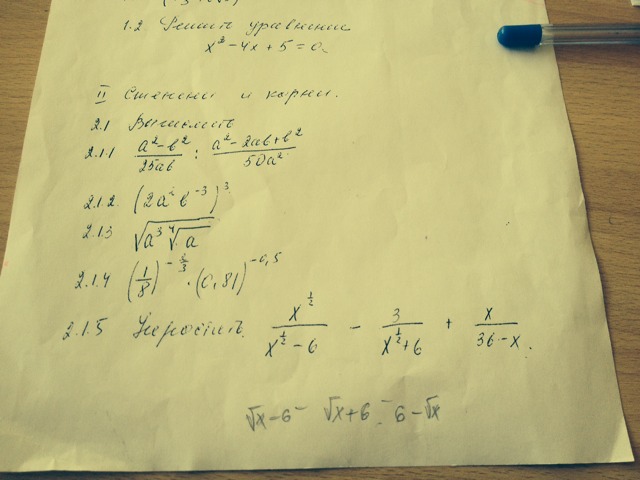 1.2 Решить уравнение
x² - 4x + 5 = 0.
II Степени и корни.
2.1 Вычислить
2.1.1 (a² - b²)/(25ab) : (a² - 2ab + b²)/(50a²)
2.1.2. (2a²b⁻³)³
2.1.3 √(a³ ⁴√a)
2.1.4 (1/8)^(-2/3) · (0,81)^(-0,5)
2.1.5 Упростить. x^(1/2)/(x^(1/2) - 6) - 3/(x^(1/2) + 6) + x/(36 - x).
√x - 6 - √x + 6 - 6 - √x